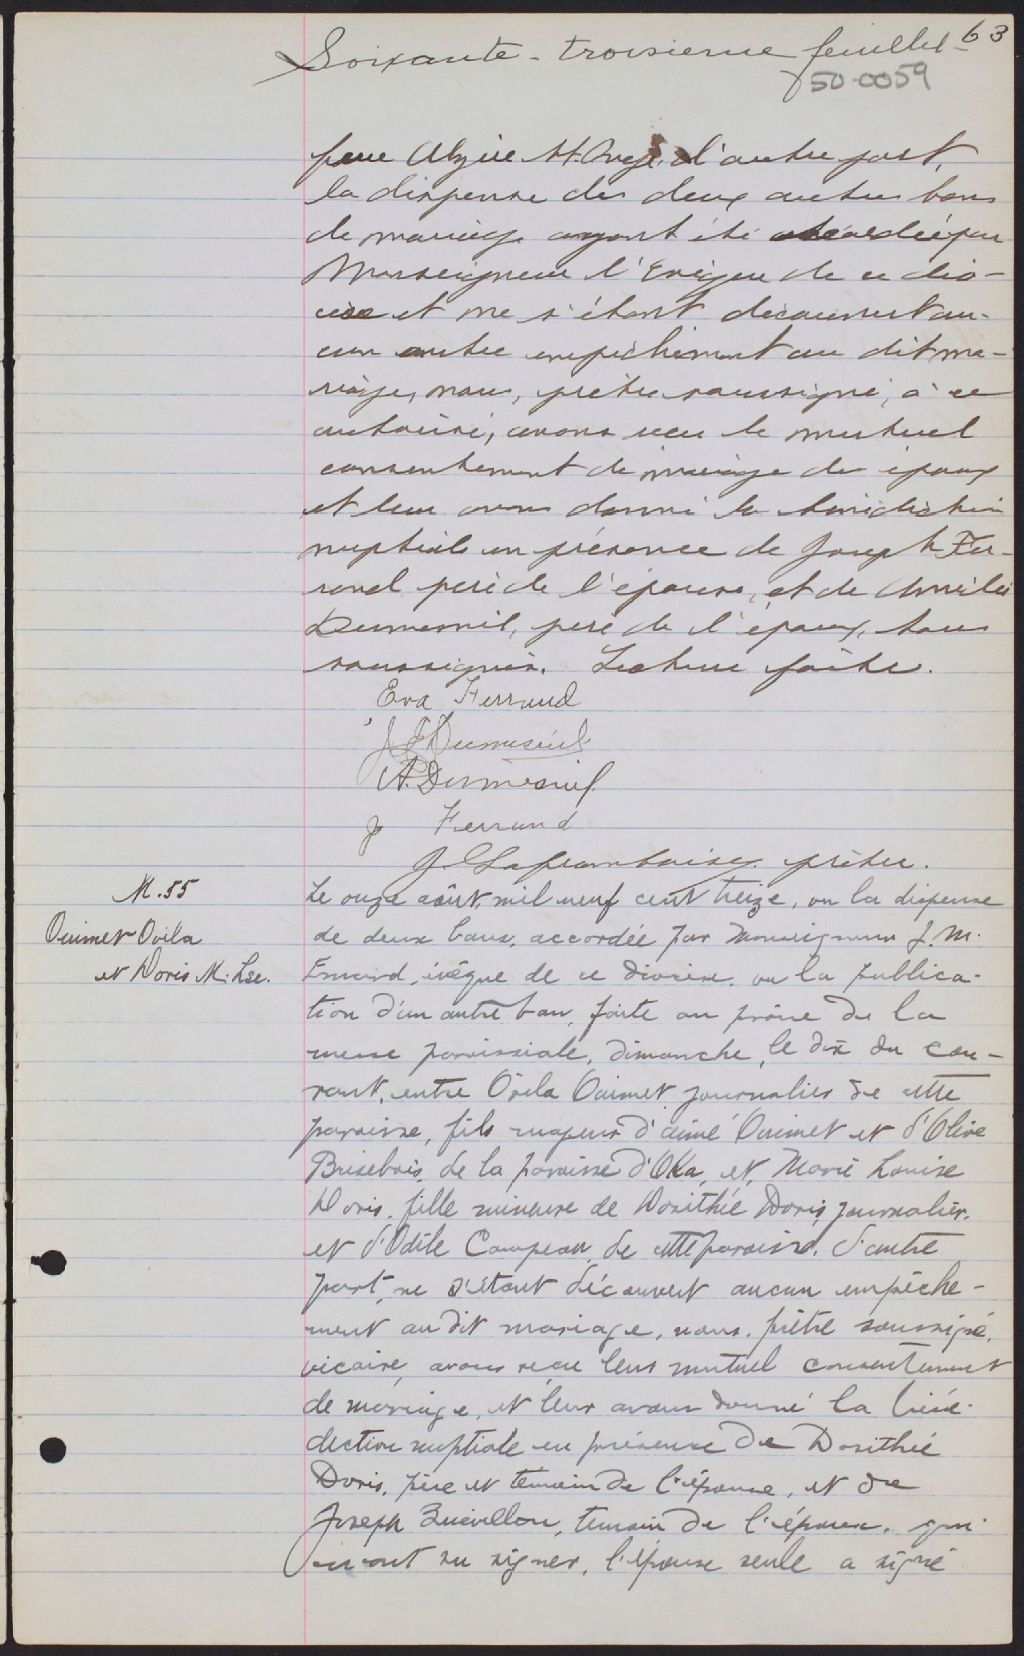 63
Soixante-troisieme feuillet
50-0059
feue Alzire St Onge, d'autre part,
la dispense des deux autres bans
de mariage ayant été accordée par
Monseigneur l'Evêque de ce dio-
cèse et ne s'étant découvert au-
cun autre empêchement au dit ma-
riage, nous, prêtre soussigné, à ce
autorisé, avons reçu le mutuel
consentement de mariage des époux
et leur avons donné la bénédiction
nuptiale en présence de Joseph Fer-
rand père de l'épouse, et de
Dumesnil, père de l'époux, tous
soussignés. Lecture faite.
Eva Ferrand
J Dumesnil
A. Dumesnil
J Ferrand
J. Laframboise, prêtre.
M. 55
Ouimet Ovila
et Doris M. Lse.
Le onze août, mil neuf cent treize, vu la dispense
de deux bans, accordée par Monseigneur J. M.
Emard, évêque de ce diocèse, vu la publica-
tion d'un autre ban, faite au prône de la
messe paroissiale, dimanche, le dix du cou-
rant, entre Ovila Ouimet journalier de cette
paroisse, fils majeur d'aimé Ouimet et d'Olive
Brisebois, de la paroisse d'Oka, et, Marie Louise
Doris, fille mineure de Dosithée Doris, journalier,
et d'Odile Campeau, de cette paroisse, d'autre
part, ne s'étant découvert aucun empêche-
ment au dit mariage, nous, prêtre soussigné,
vicaire, avons reçu leur mutuel consentement
de mariage, et leur avons donné la béné-
diction nuptiale en présence de Dosithée
Doris, père et témoin de l'épouse, et de
Joseph Quévillon, témoin de l'époux, qui
n'ont su signer, l'épouse seule a signé